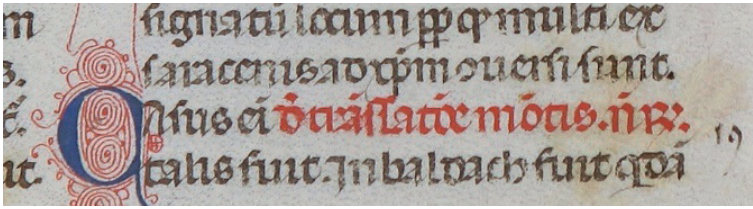 m signatū locum ꝓp qđ multi ex
s. saracenis ad xp̄m ꝯuersi sunt.
t̄. CAsus eī d̄ trāslatōe mōtis. n̄ xx. 19
it. talis fuit. In baldach fuit qdā